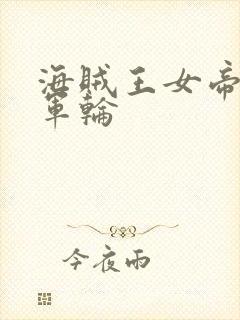 海贼王女帝
军輪
今夜雨